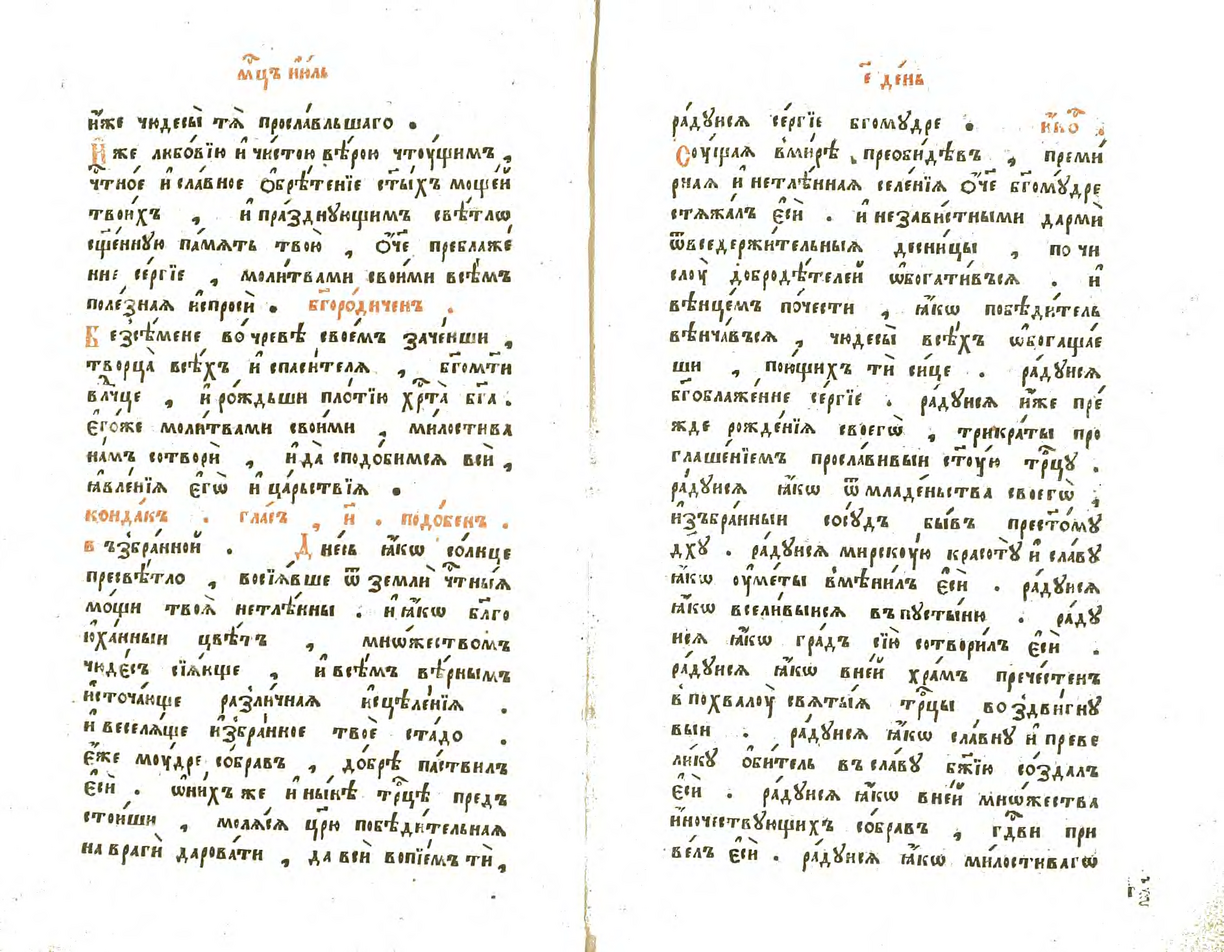 мⷭ҇цъ і҆ю́ль
и҆́же чюдесы̀ тѧ̀ просла́вльшаго .
И҆̀же любо́вїю и҆ чи́стою вѣ́рою чтоу́щимъ ,
чⷭ҇тное и҆ сла́вное ѻ҆брѣ́тенїе ст҃ы́хъ моще́й
твои́хъ , и҆ пра́зднующимъ свѣ́тлѡ
сщ҃е́нную па́мѧть твою̀ , ѻ҆́ч҃е преблаже́
нне се́ргїе , моли́твами свои́ми всѣ́мъ
поле́знаѧ и҆спросѝ . бг҃оро́диченъ .
Безсѣ́мене во чре́вѣ свое́мъ заче́нши ,
творца̀ всѣ́хъ и҆ спаси́телѧ , бг҃ома́ти
влⷣчце , и҆ ро́ждьши пло́тїю хрⷭ҇та̀ бг҃а .
є҆го́же моли́твами свои́ми , ми́лостива
на́мъ сотворѝ , и҆ да сподо́бимсѧ всѝ ,
ꙗ҆вле́нїѧ є҆гѡ̀ и҆ ца́рьствїѧ .
конда́къ . гла́съ , и҃ . подо́бенъ .
въ́збра́нной . Дне́сь ꙗ҆́кѡ со́лнце
пресвѣ́тло , восїѧ́вше ѿ землѝ чⷭ҇тны́ѧ
мо́щи твоѧ̀ нетлѣ́нны . и҆ ꙗ҆́кѡ бл҃го
ю҆ха́нныи цвѣ́тъ , мнѡ́жествомъ
чюде́съ сїѧ́юще , и҆ всѣ́мъ вѣ́рнымъ
и҆сточа́юще разли́чнаѧ и҆сцѣле́нїѧ .
и҆ веселѧ́ще и҆збра́нное твоѐ ста́до .
є҆́же моу́дре собра́въ , до́брѣ па́ствилъ
є҆сѝ . ѡ҆ни́хъ же и҆ ны́нѣ трⷪ҇цѣ предъ
стои́ши , молѧ́сѧ цр҃ю побѣди́тельнаѧ
на врагѝ дарова́ти , да всѝ вопїе́мъ тѝ ,
є҃ де́нь
ра́дуисѧ се́ргїе бг҃ому́дре . и҆́коⷭ҇ .
Соу́щаѧ в ми́рѣ преоби́дѣвъ , преми́
рнаѧ и҆ нетлѣ́ннаѧ селе́нїѧ ѻ҆́ч҃е бг҃ому́дре
стѧжа́лъ є҆сѝ . и҆ незави́стными дармѝ
ѿвседержи́тельныѧ десни́цы , по чи
слоу̀ добродѣ́телей ѡ҆богати́въсѧ . и҆
вѣнце́мъ по́чести , ꙗ҆́кѡ побѣди́тель
вѣнча́въсѧ , чюдесы̀ всѣ́хъ ѡ҆богаща́е
ши , пою́щихъ тѝ си́це . ра́дуисѧ
бг҃облаже́нне се́ргїе . ра́дуисѧ и҆́же пре́
жде рожде́нїѧ своегѡ̀ , трикра́ты про
глаше́нїемъ просла́вивыи ст҃оу́ю трⷪ҇цу .
ра́дуисѧ ꙗ҆́кѡ ѿ младе́ньства своегѡ̀ ,
и҆зъбра́нныи сосу́дъ бы́въ прест҃о́му
дх҃у . ра́дуисѧ мирскоу́ю красоту̀ и҆ сла́ву
ꙗ҆́кѡ оу҆ме́ты вмѣни́лъ є҆сѝ . ра́дуисѧ
ꙗ҆́кѡ всели́выисѧ въ пусты́ню . ра́ду
исѧ ꙗ҆́кѡ гра́дъ сїю̀ сотвори́лъ є҆сѝ .
ра́дуисѧ ꙗ҆́кѡ вне́й хра́мъ пречестенъ
в похвалоу̀ свѧты́ѧ трⷪ҇цы воздви́гну
выи . ра́дуисѧ ꙗ҆́кѡ сла́вну и҆ преве
ли́ку ѻ҆би́тель въ сла́ву бж҃їю со́здалъ
є҆сѝ . ра́дуисѧ ꙗ҆́кѡ вне́й мнѡ́жества
и҆́ночествующихъ собра́въ , гдⷭ҇ви при
ве́лъ є҆сѝ . ра́дуисѧ ꙗ҆́кѡ ми́лостивагѡ